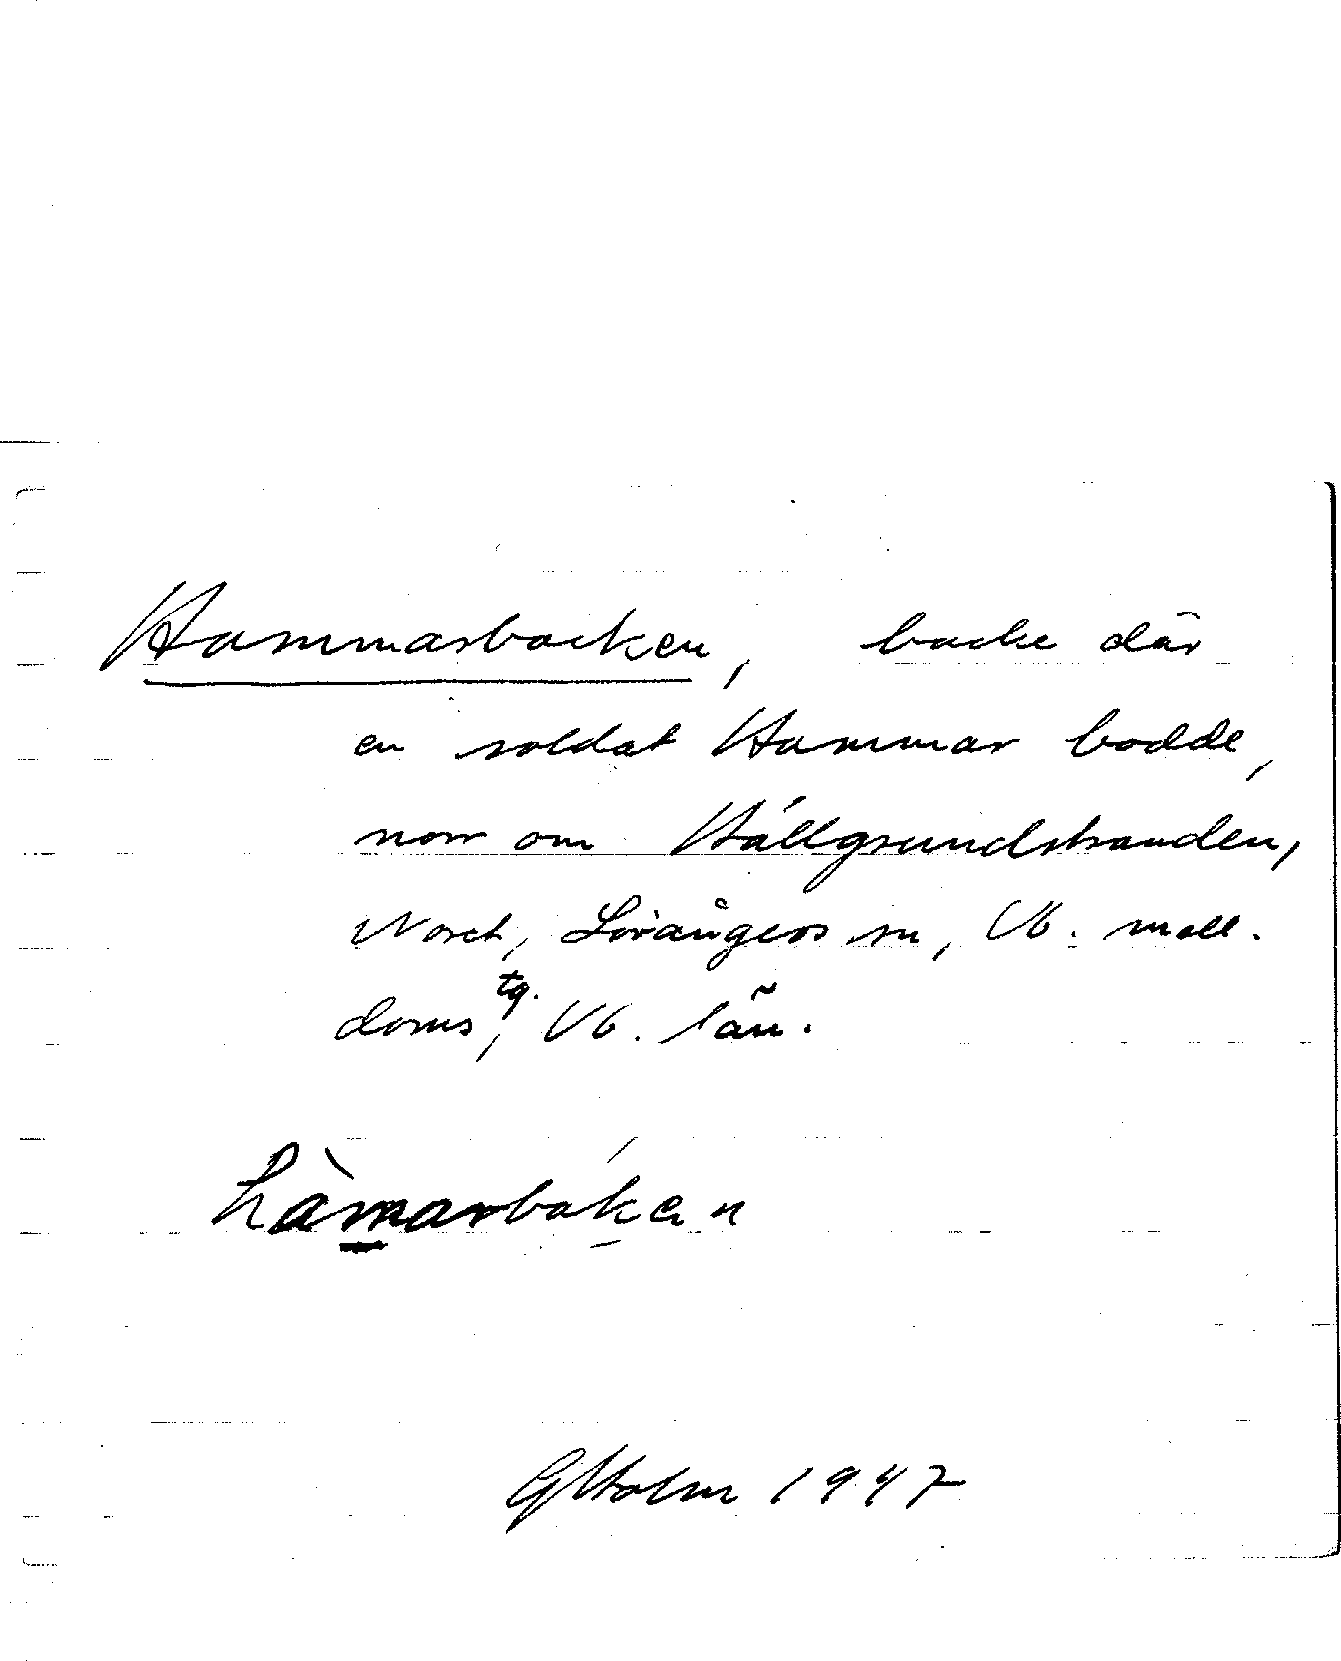 Hammarbacken, backe där
en soldat Hammar bodde,
norr om Hällgrundstranden,
Lövångers sn, Vb. mell.
doms tg., Vb. län.
hàmarbákan
GHolm 1947